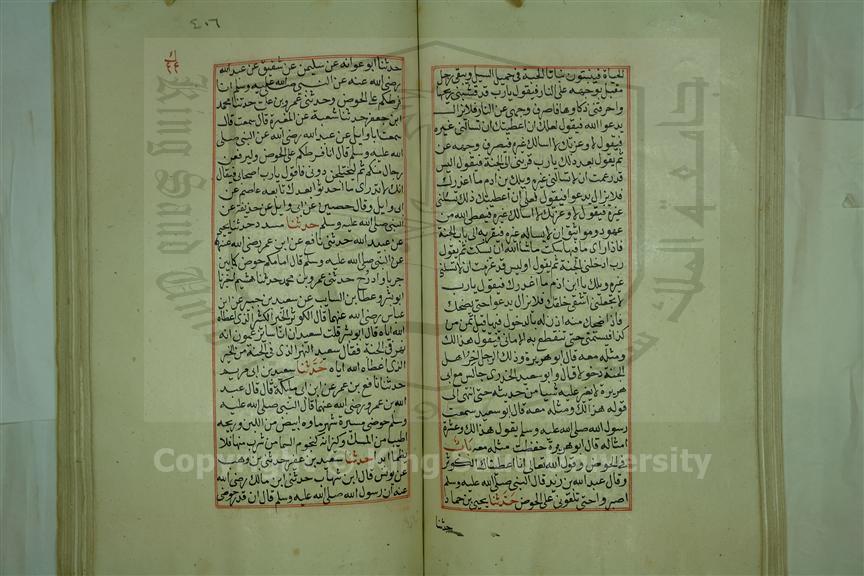 الحياة فينبتون نبات الحبة في حميل السيل ويبقى رجل
مقبل بوجهه على النار فيقول يارب قد قشبني ريحها
واحرقني ذكاوها فاصرف وجهي عن النار فلا يزال
يدعوا الله فيقول لعلك ان اعطيتك ان تسالني غيره
فيقول لا وعزتك لا اسالك غيره فيصرف وجهه عن
ثم يقول بعد ذلك يارب قربني الى الجنة فيقول اليس
قد زعمت ان لا تسالني غيره ويلك بن ادم ما اغدرك
فلا يزال يدعوا فيقول لعلي ان اعطيتك ذلك تسالني
غيره فيقول لا وعزتك لا اسالك غيره فيعطي الله من
عهود ومواثيق ان لا يساله غيره فيقربه الى باب الجنة
فاذا راى ما فيها سكت ماشا الله ان يسكت ثم يقول
رب ادخلني الجنة ثم يقول اوليس قد زعمت ان لا تسالني
غيره ويلك يا ابن ادم ما اغدرك فيقول يارب
لا تجعلني اشقى خلقك فلا يزال يدعوا حتى يضحك
فاذا ضحك منه اذن له بالدخول فيها قيل تمن من
كذا فيتمنى حتى تنقطع به الاماني فيقول هذا لك
ومثله معه قال ابو هريرة وذلك الرجل اخر اهل
الجنة دخولا قال وابو سعيد الخدري جالس مع ابي
هريرة لا يغير عليه شيا من حديثه حتى انتهى الى
قوله هذا لك ومثله معه قال ابو سعيد سمعت
رسول الله صلى الله عليه وسلم يقول هذا لك وعشرة
امثاله قال ابو هريرة حفظت مثله معه باب
في الحوض وقول الله تعالى انا اعطيناك الكوثر
وقال عبد الله بن زيد قال النبي صلى الله عليه وسلم
اصبروا حتى تلقوني على الحوض حدثنا يحيى بن حماد
حدثنا
٤٠٦
حدثنا ابو عوانه عن سليمن عن شقيق عن عبد الله
رضي الله عنه عن النبي صلى الله عليه وسلم انا
فرطكم على الحوض وحدثني عمرو بن علي حدثنا محمد
ابن جعفر حدثنا شعبة عن المغيرة قال سمعت
سمعت ابا وايل عن عبد الله رضي الله عنه عن النبي صلى
الله عليه وسلم قال انا فرطكم على الحوض وليرفعن
رجال منكم ثم ليختلجن دوني فاقول يارب اصحابي فيقال
انك لا تدري ما احدثوا بعدك تابعه عاصم عن
ابي وايل وقال حصين عن ابي وايل عن حذيفة عن
النبي صلى الله عليه وسلم حدثنا مسدد حدثنا يحيى
عن عبيد الله حدثني نافع عن ابن عمر رضي الله عنه
عن النبي صلى الله عليه وسلم قال امامكم حوض كما بين
جربا واذرح حدثني عمرو بن محمد حدثنا هشيم اخبرنا
ابو بشر وعطا بن السايب عن سعيد بن جبير عن ابن
عباس رضي الله عنهما قال الكوثر الخير الكثير الذي اعطاه
الله اياه قال ابو بشر قلت لسعيد ان اناسا يزعمون انه
نهر في الجنة فقال سعيد النهر الذي في الجنة من الخير
الذي اعطاه الله اياه حدثنا سعيد بن ابي مريم
حدثنا نافع بن عمر عن ابن ابي مليكة قال قال عبد
الله بن عمرو رضي الله عنهما قال النبي صلى الله عليه
وسلم حوضي مسيرة شهر ماوه ابيض من اللبن وريحه
اطيب من المسك وكيزانه كنجوم السما من شرب منها فلا
يظما ابدا حدثنا سعيد بن عفير حدثني بن وهب
عن يونس قال ابن شهاب حدثني انس بن مالك رضي الله
عنه ان رسول الله صلى الله عليه وسلم قال ان قدر حوضي
جامعة الملك سعود
King Saud University
Copyright © King Saud University